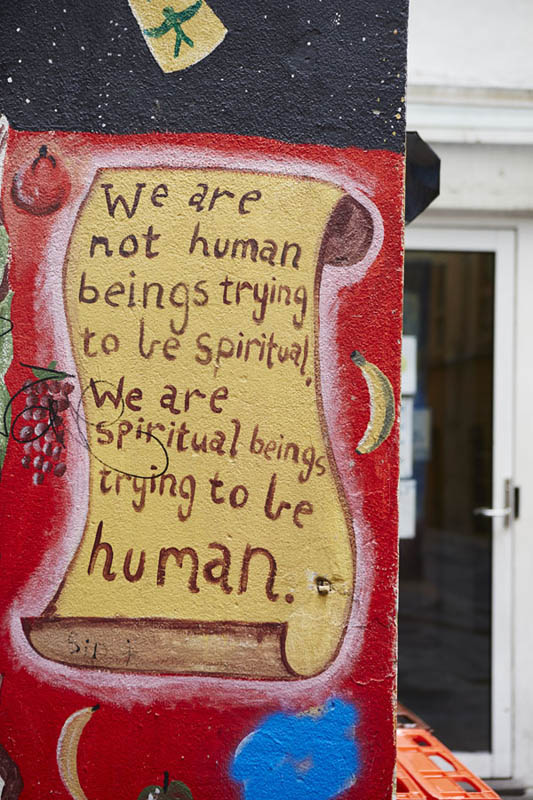 We are
not human
beings trying
to be spiritual.
We are
spiritual beings
trying to be
human.